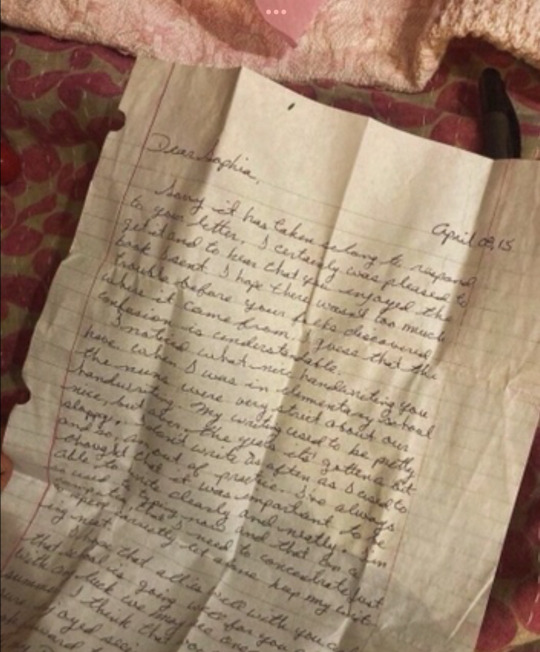 April 09, 15
Dear Sophia,
Sorry it has taken so long to respond
to your letter. I certainly was pleased to
get it and to hear that you enjoyed the
book I sent. I hope there wasn't too much
trouble before your folks discovered
where it came from. I guess that the
confusion is understandable.
I noticed what nice handwriting you
have. When I was in elementary school
the nuns were very strict about our
handwriting. My writing used to be pretty
nice, but over the years its gotten a bit
sloppy. I don't write as often as I used to
and so am out of practice. I've always
thought that it was important to be
able to write clearly and neatly. I'm
so used to typing now and that on a
that I need to concentrate just
to let alone keep my writ-
ing neat.
I hope that all is well with you
that school is going well for you
With luck we may
I think that